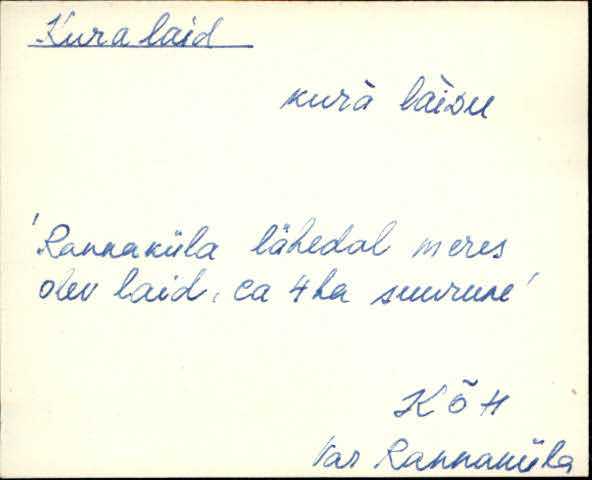 Kura laid
kurà làiᴅu
'Rannaküla lähedal meres
olev laid, ca 4 ha suurune'
KõH
Var Rannaküla